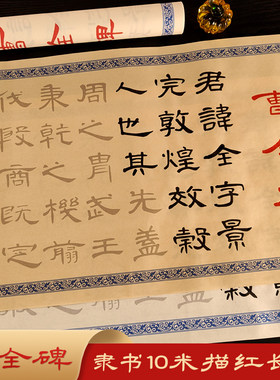 曹全
君諱全字景
完敦煌效穀
人也其先蓋
周之胄武王
秉乾之機翦
伐殷商既定
全碑
隶书10米描红长